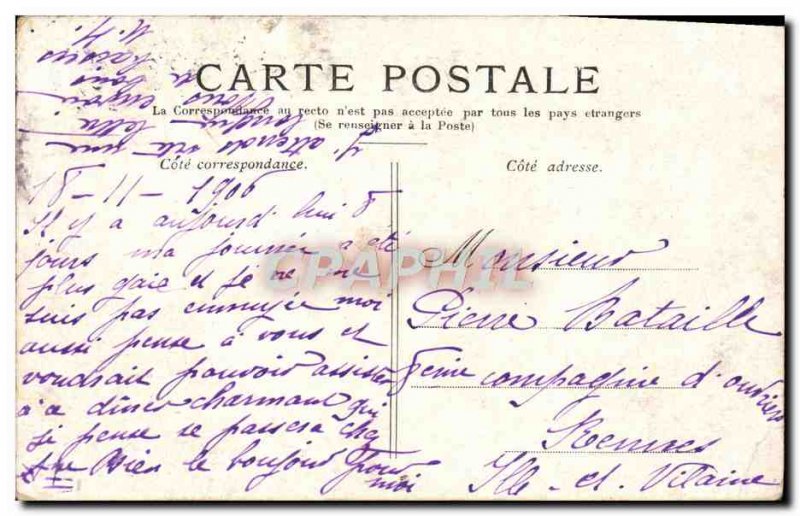 CARTE POSTALE
La Correspondance au recto n'est pas acceptée par tous les pays etrangers
(Se renseigner à la Poste)
Côté correspondance.
Côté adresse.
18-11-1906
Il y a aujourd'hui 8
jours ma journée a été
plus gaie et je ne me
suis pas ennuyée moi
aussi pense à vous et
voudrait pouvoir assister
à a diner charmant qui
je pense se passera chez
le bonjour pour
moi
J'attends une
lettre
Monsieur
Pierre Bataille
8eme compagnie d'ouvriers
Rennes
Ille-et-Vilaine
CPAPHIL